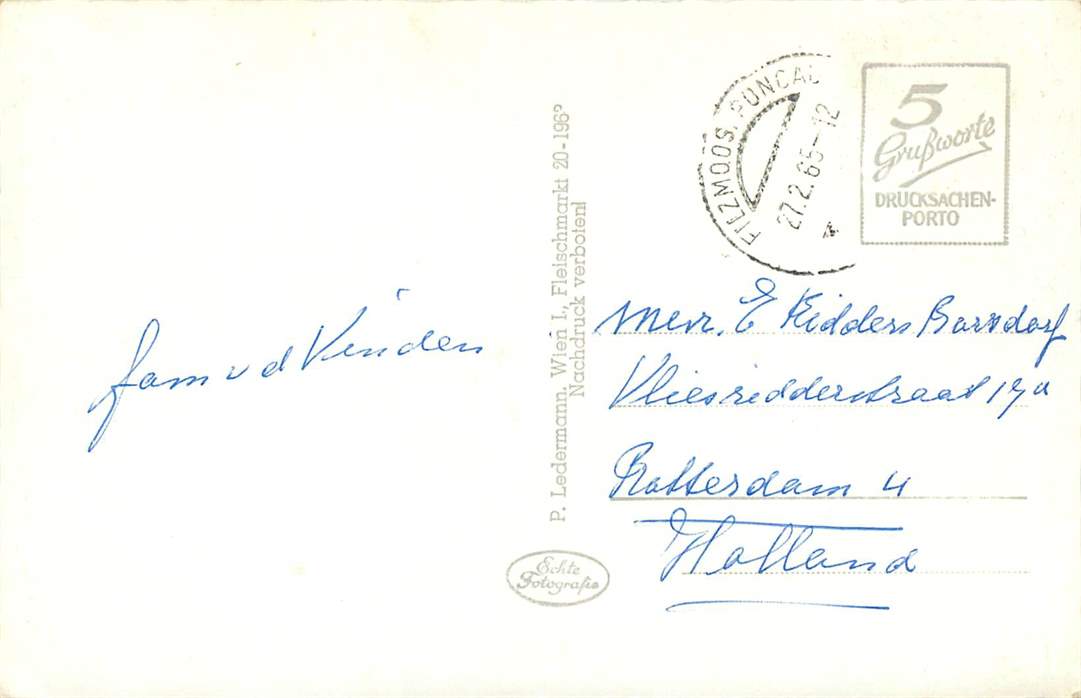 FILZMOOS, PONGAU
27.2.65-12
5
Grußworte
DRUCKSACHEN-
PORTO
P. Ledermann, Wien I., Fleischmarkt 20-1963
Nachdruck verboten!
fam v d Kinden
Mevr. E Ridders Barsdorf
Vliesridderstraat 17a
Rotterdam 4
Holland
Echte
Fotografie